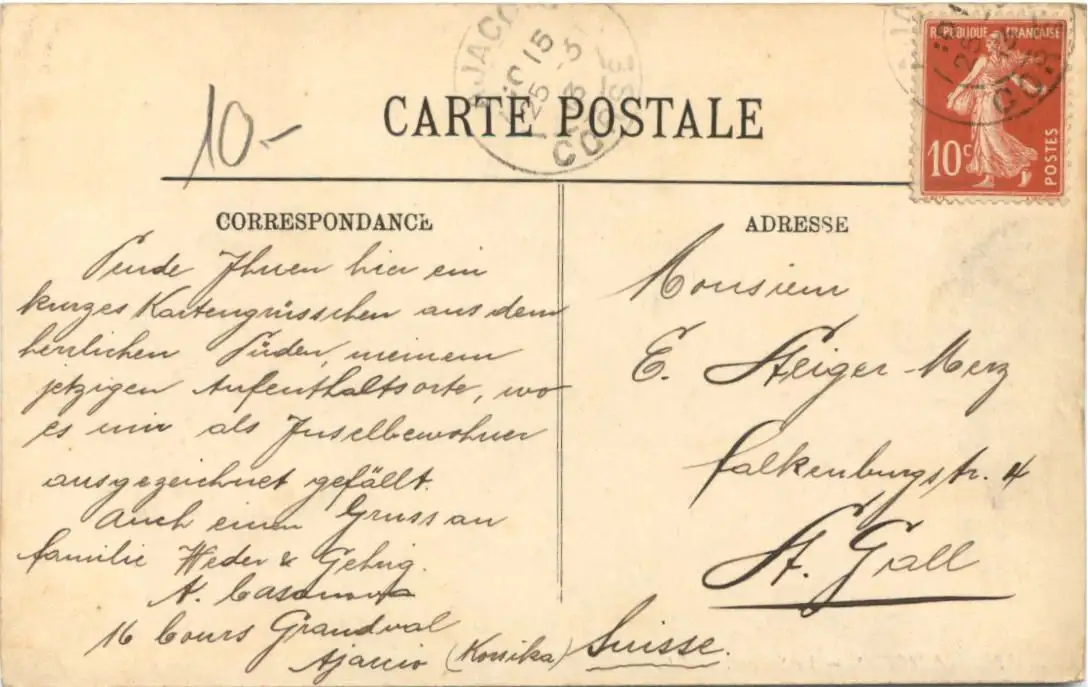 10-
AJACCIO
15
25 -3
13
CORSE
CARTE POSTALE
REPUBLIQUE FRANÇAISE
10c
POSTES
CORRESPONDANCE
Sende Ihnen hier ein
kurzes Kartengrüsschen aus dem
herrlichen Süden, meinem
jetzigen Aufenthaltsorte, wo
es mir als Inselbewohner
ausgezeichnet gefällt.
Auch einen Gruss an
Familie Weder & Gehrig.
A. Casanova
16 Cours Grandval
Ajaccio (Korsika)
ADRESSE
Monsieur
E. Steiger-Merz
Falkenburgstr. 4
St. Gall
Suisse.